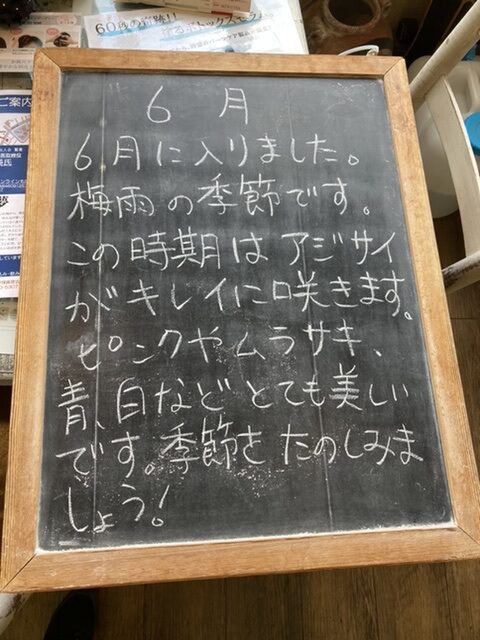 60歳の奇跡!!
ご案内
6月
6月に入りました。
梅雨の季節です。
この時期はアジサイ
がキレイに咲きます。
ピンクやムラサキ、
青、白などとても美しい
です。季節をたのしみま
しょう!